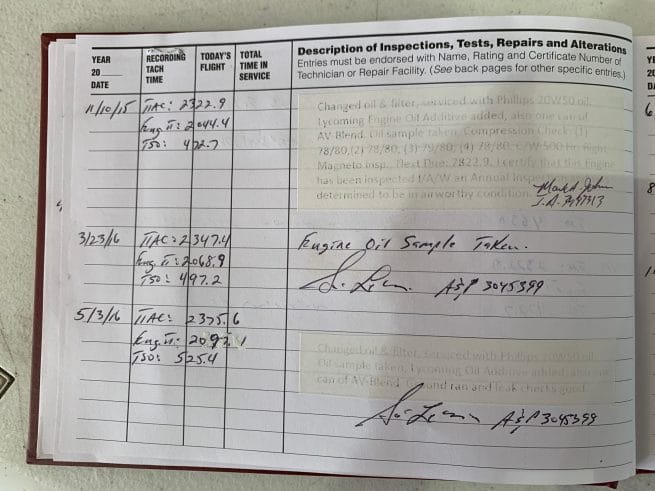 YEAR 20___ DATE
RECORDING TACH TIME
TODAY'S FLIGHT
TOTAL TIME IN SERVICE
Description of Inspections, Tests, Repairs and Alterations
Entries must be endorsed with Name, Rating and Certificate Number of
Technician or Repair Facility. (See back pages for other specific entries.)
11/10/15
TAC: 2322.9
Eng. TT: 2044.4
TSO: 472.7
Changed oil & filter, serviced with Phillips 20W50 oil.
Lycoming Engine Oil Additive added, also one can of
AV-Blend. Oil sample taken, Compression Check: (1)
78/80, (2) 78/80, (3) 79/80, (4) 78/80, C/W 500 hr. Right
Magneto insp. Next Due: 2822.9. I certify that this Engine
has been inspected I/A/W an Annual
determined to be in airworthy condition.
I.A.
3/23/16
TAC: 2347.4
Eng. TT: 2068.9
TSO: 497.2
Engine Oil Sample Taken.
A&P 3045399
5/3/16
TAC: 2375.6
Eng. TT:
TSO: 525.4
Changed oil & filter, serviced with Phillips 20W50 oil.
Oil sample taken, Lycoming Engine Oil Additive added, also one
can of AV-Blend. Ground ran and leak checks good.
A&P 3045399